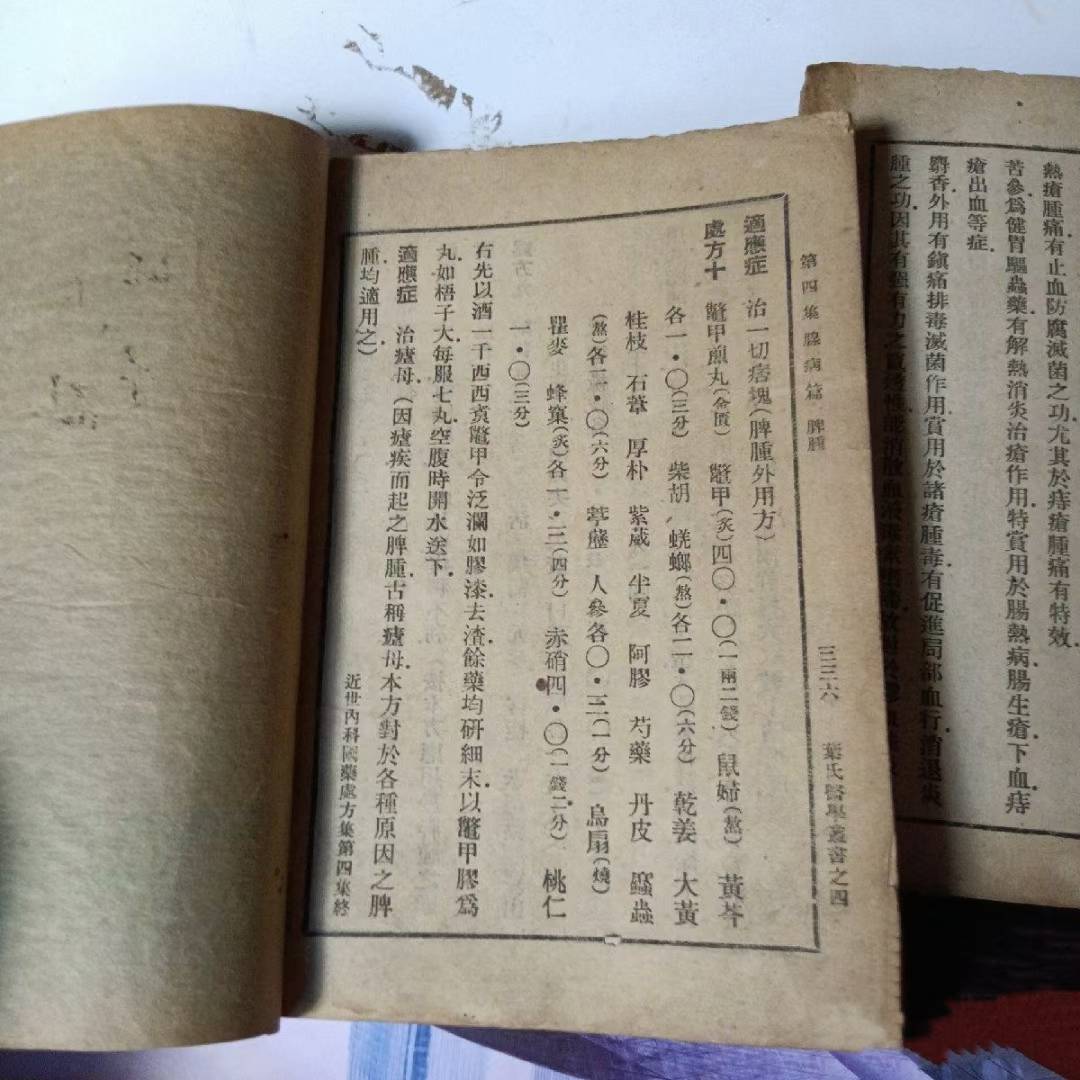 熱瘡腫痛有止血防腐滅菌之功尤其於痔瘡腫痛有特效.
苦參爲健胃驅蟲藥.有解熱消炎治瘡作用.特賞用於腸熱病腸生瘡.下血痔
瘡出血等症.
麝香外用有鎮痛排毒滅菌作用.賞用於諸瘡腫毒.有促進局部血行.消退炎
腫之功.因其有强有力之
第四集腺病篇 脾腫 三三六 葉氏醫學叢書之四
適應症 治一切痞塊(脾腫外用方)
處方十 鼈甲煎丸(金匱) 鼈甲(炙)四〇・〇(一兩二錢) 鼠婦(熬) 黃芩
各一・〇(三分) 柴胡 蜣螂(熬)各二・〇(六分) 乾姜 大黃
桂枝 石葦 厚朴 紫葳 半夏 阿膠 芍藥 丹皮 䗪蟲
(熬)各二・〇(六分) 葶藶 人參各〇・三(一分) 烏扇(燒)
瞿麥 蜂窠(炙)各一・三(四分) 赤硝四・〇(一錢二分) 桃仁
一・〇(三分)
右先以酒一千西西煑鼈甲令泛瀾如膠漆.去渣餘藥均研細末.以鼈甲膠爲
丸.如梧子大.每服七丸.空腹時開水送下.
適應症 治瘧母(因瘧疾而起之脾腫.古稱瘧母.本方對於各種原因之脾
腫.均適用之)
近世內科國藥處方集第四集終